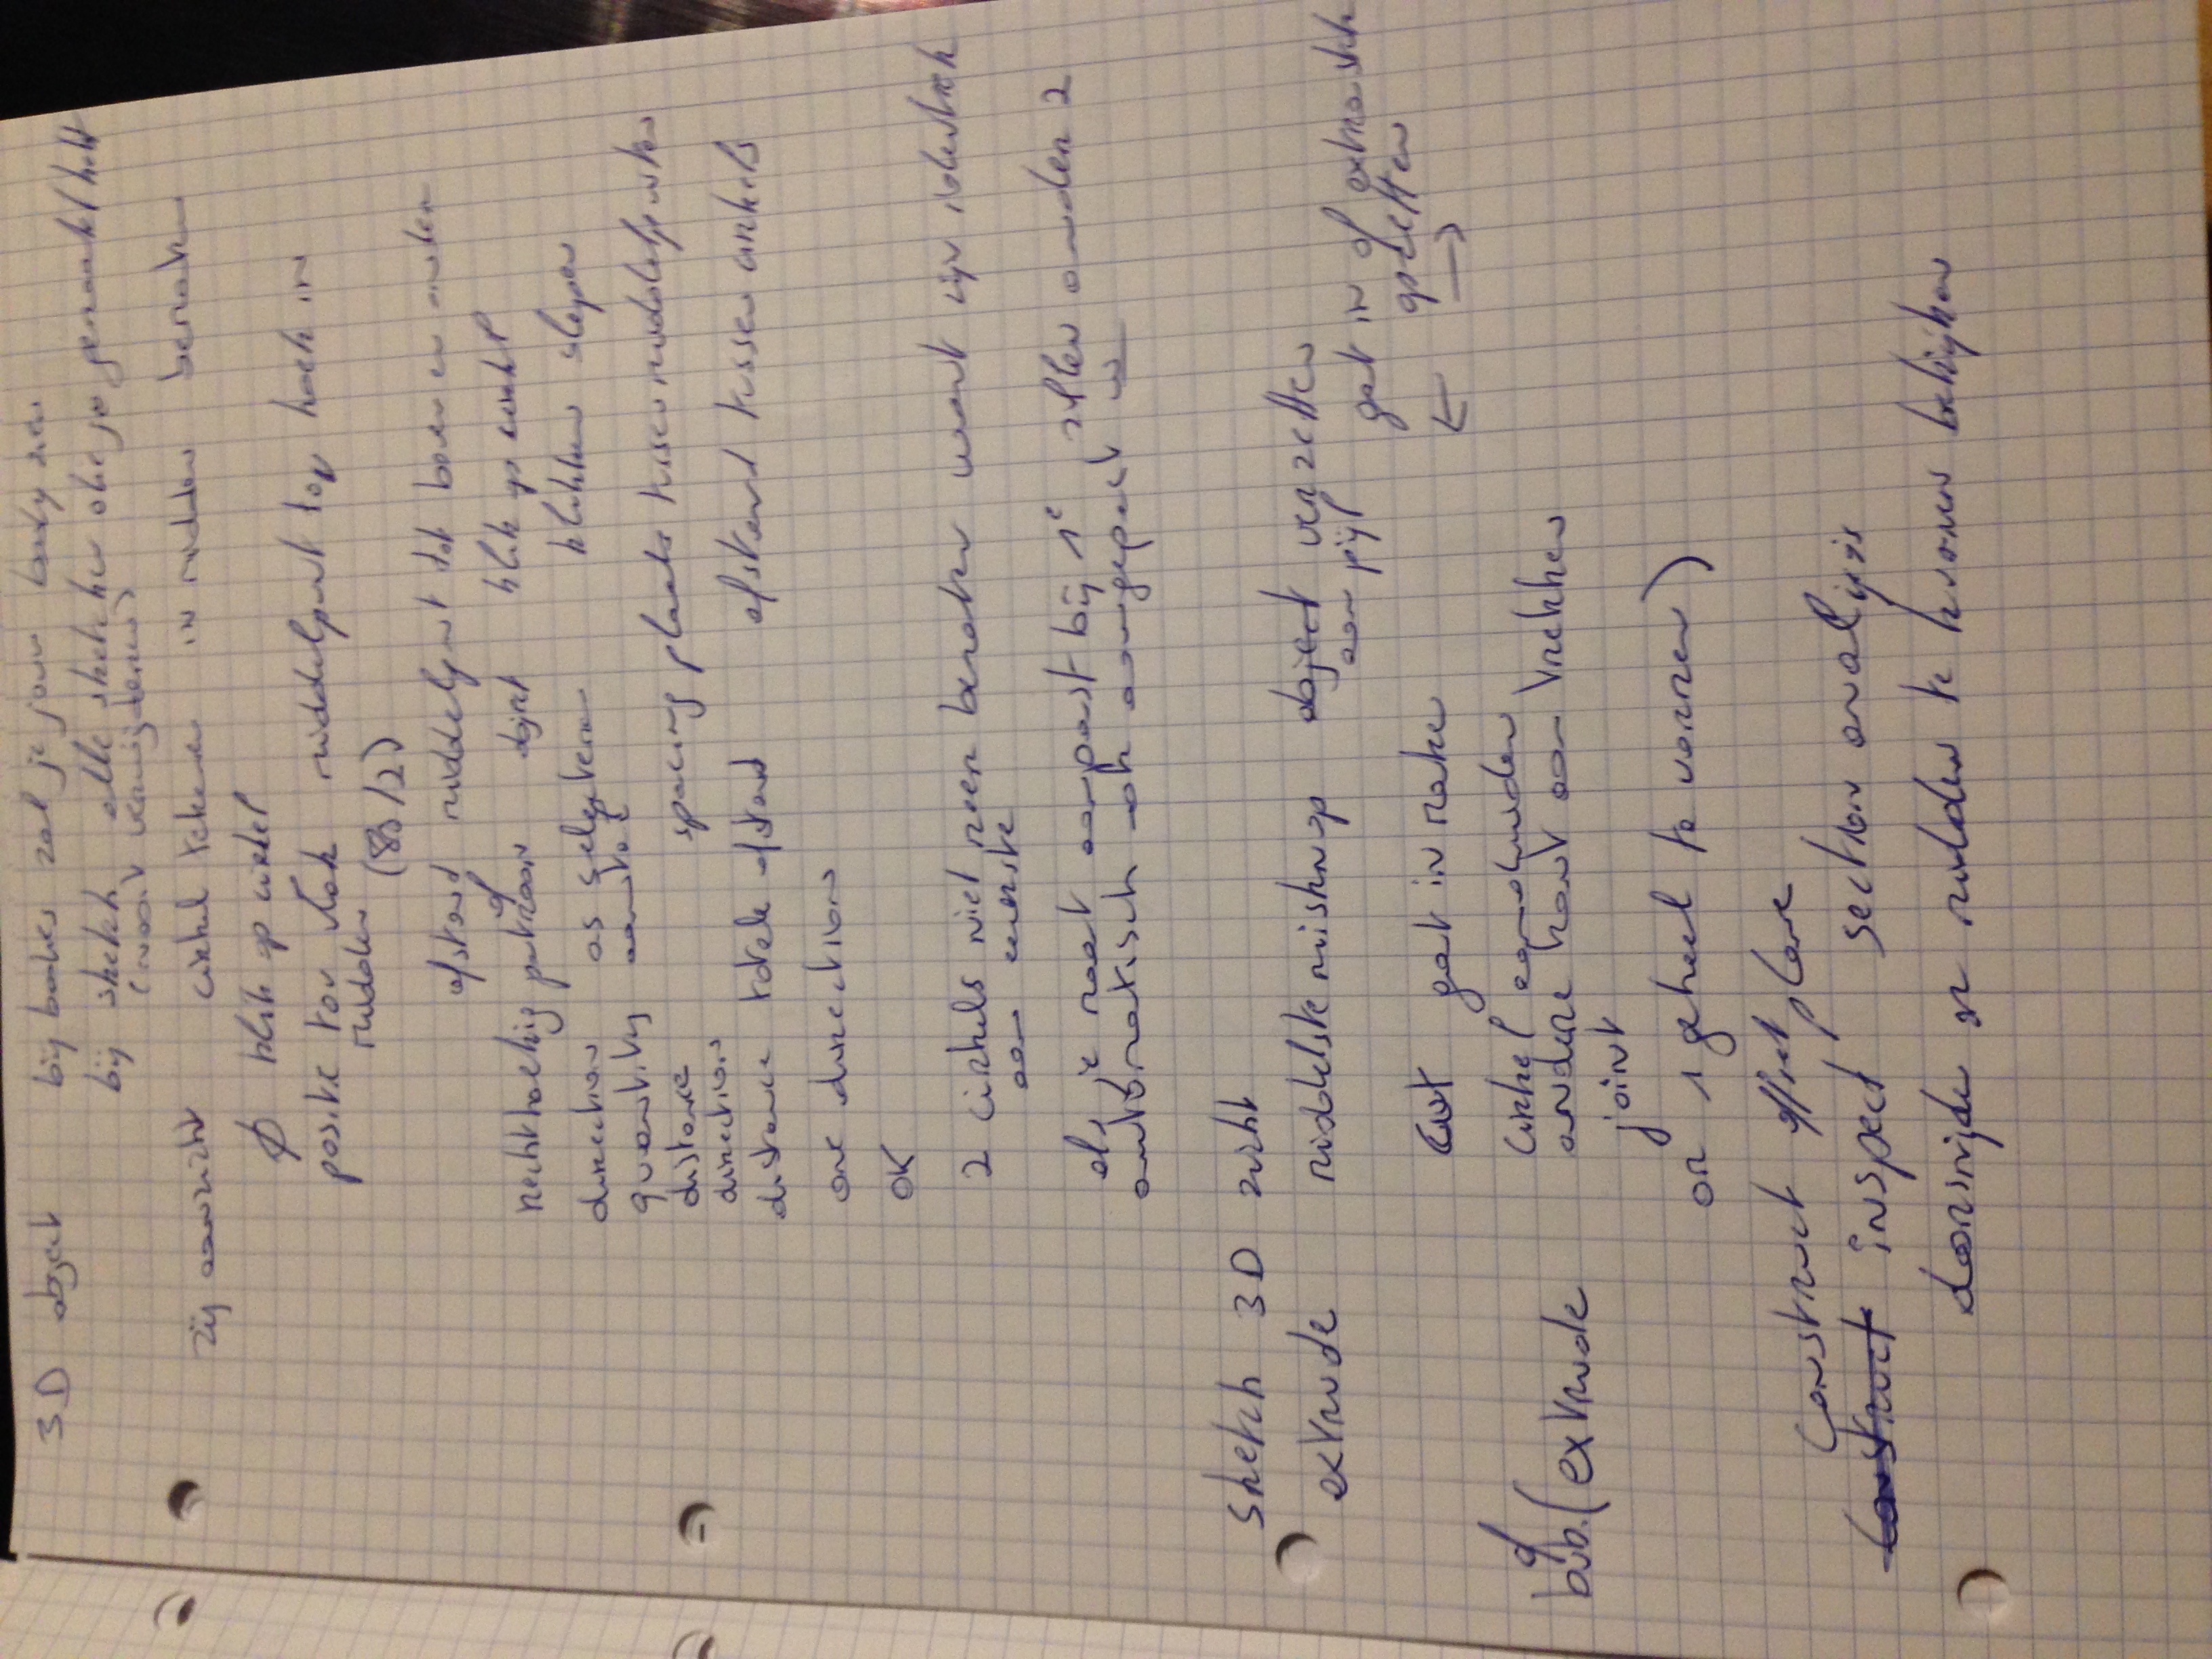 3D object bij bodies zal je jouw body zien
bij sketch alle sketches die je gemaakt hebt
(nooit verwijderen)
zij aanzicht cirkel tekenen in midden bematen
Ø klik op cirkel
positie tov vlak middelpunt tov hoek in
midden
(80/2)
afstand middelpunt tot boven en onder
rechthoekig patroon object klik op cirkel
direction as selecteren klikken slepen
quantity aantal
distance spacing plaats tussen middelpunten
direction
distance totale afstand afstand tussen cirkels
one direction
OK
2 cirkels niet meer bematen want zijn identiek
aan eerste
als je maat aanpast bij 1e zullen ander 2
automatisch ook aangepast w
sketch 3D zicht
extrude middelste muisknop object verzetten
aan pijl gat in of extra stuk
opzetten
cut gat in maken ← →
cirkel aanduiden
bvb. (extrude andere kant aan trekken
joint
om 1 geheel te vormen)
Construct offset plane
Construct inspect section analysis
doorsnijden om midden te kunnen bekijken